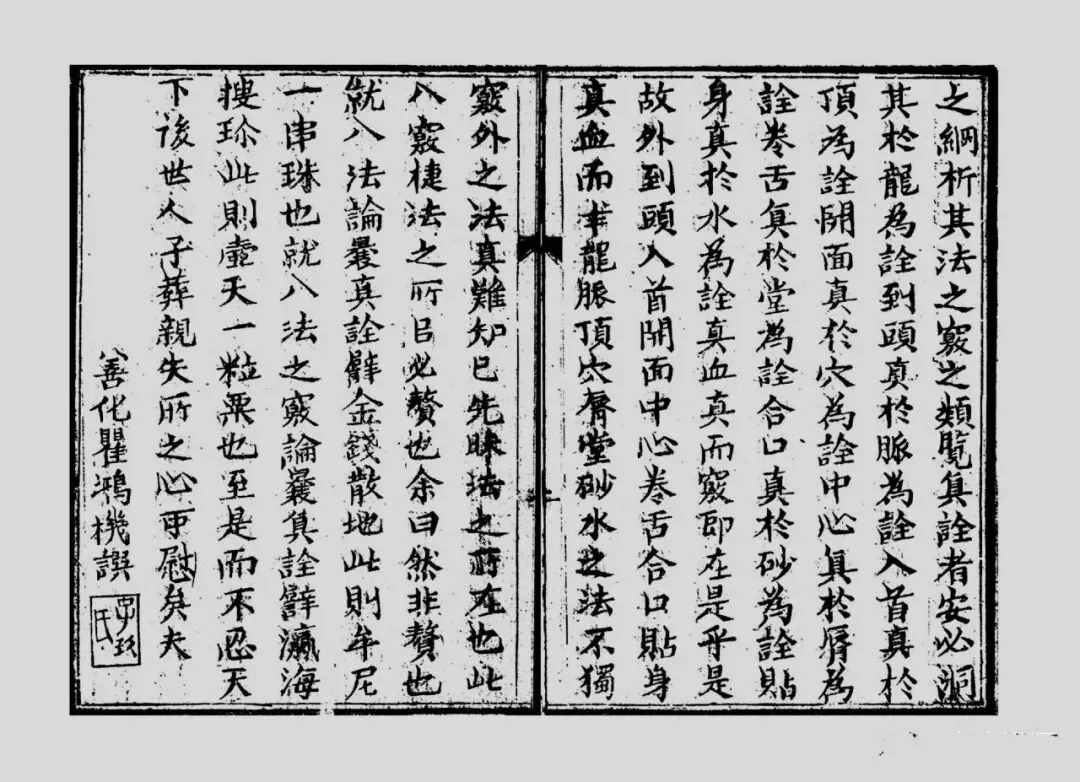 之綱析其法之竅之類覽真詮者安必洞
其於龍為詮到頭真於脈為詮入首真於
頂為詮開面真於穴為詮中心真於脣為
詮卷舌真於堂為詮合口真於砂為詮貼
身真於水為詮真血真而竅即在是乎是
故外到頭入首開面中心卷舌合口貼身
真血而求龍脈頂穴脣堂砂水之法不獨
竅外之法真難知已先昧法之所在也此
八竅棲法之所㠯必贅也余曰然非贅也
就八法論曩真詮辟金錢散地此則牟尼
一串珠也就八法之竅論曩真詮辟瀛海
搜珍此則壺天一粒粟也至是而不忍天
下後世人子葬親失所之心可慰矣夫
善化瞿鴻機譔
氏